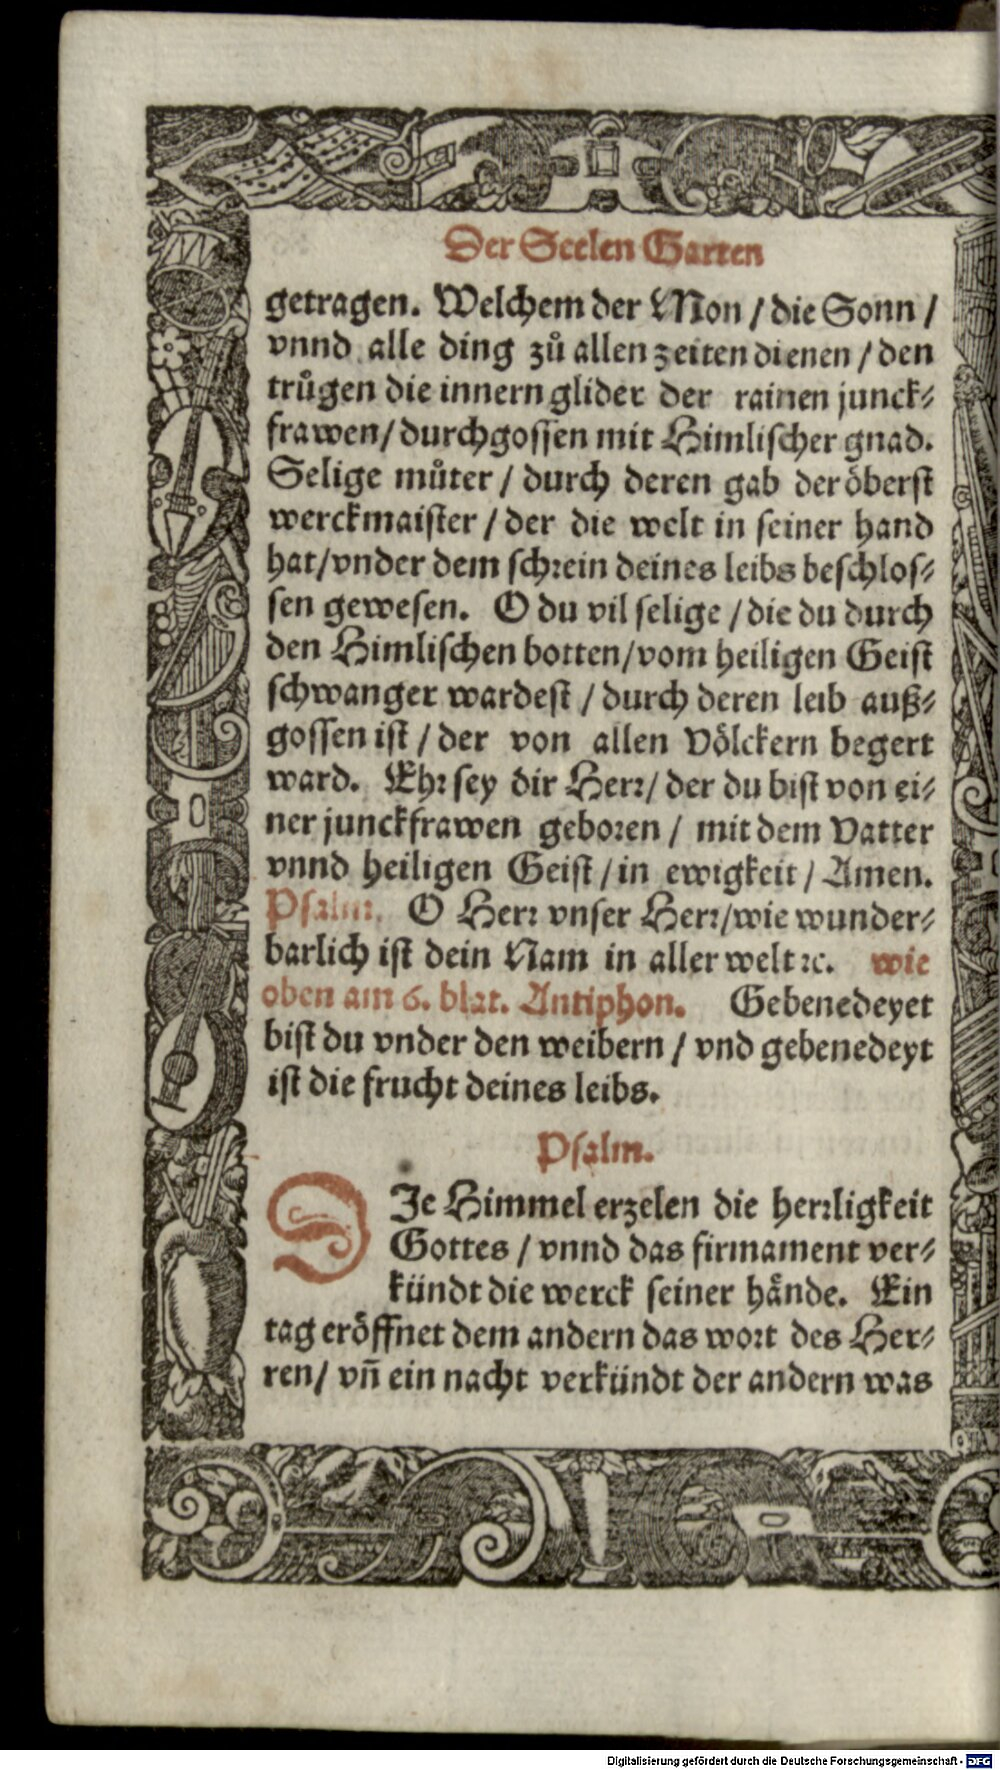 Der Seelen Garten
getragen. Welchem der Mon / die Sonn /
vnnd alle ding zů allen zeiten dienen / den
trůgen die innern glider der rainen junck⸗
frawen / durchgossen mit Himlischer gnad.
Selige můter / durch deren gab der öberst
werckmaister / der die welt in seiner hand
hat / vnder dem schrein deines leibs beschlos⸗
sen gewesen. O du vil selige / die du durch
den Himlischen botten / vom heiligen Geist
schwanger wardest / durch deren leib auß⸗
gossen ist / der von allen Völckern begert
ward. Ehr sey dir Herr / der du bist von ei⸗
ner junckfrawen geboren / mit dem Vatter
vnnd heiligen Geist / in ewigkeit / Amen.
Psalm. O Herr vnser Herr / wie wunder⸗
barlich ist dein Nam in aller welt ꝛc. wie
oben am 6. blat. Antiphon. Gebenedeyet
bist du vnder den weibern / vnd gebenedeyt
ist die frucht deines leibs.
Psalm.
DIe Himmel erzelen die herrligkeit
Gottes / vnnd das firmament ver⸗
kündt die werck seiner hände. Ein
tag eröffnet dem andern das wort des Her⸗
ren / vñ ein nacht verkündt der andern was
Digitalisierung gefördert durch die Deutsche Forschungsgemeinschaft - DFG